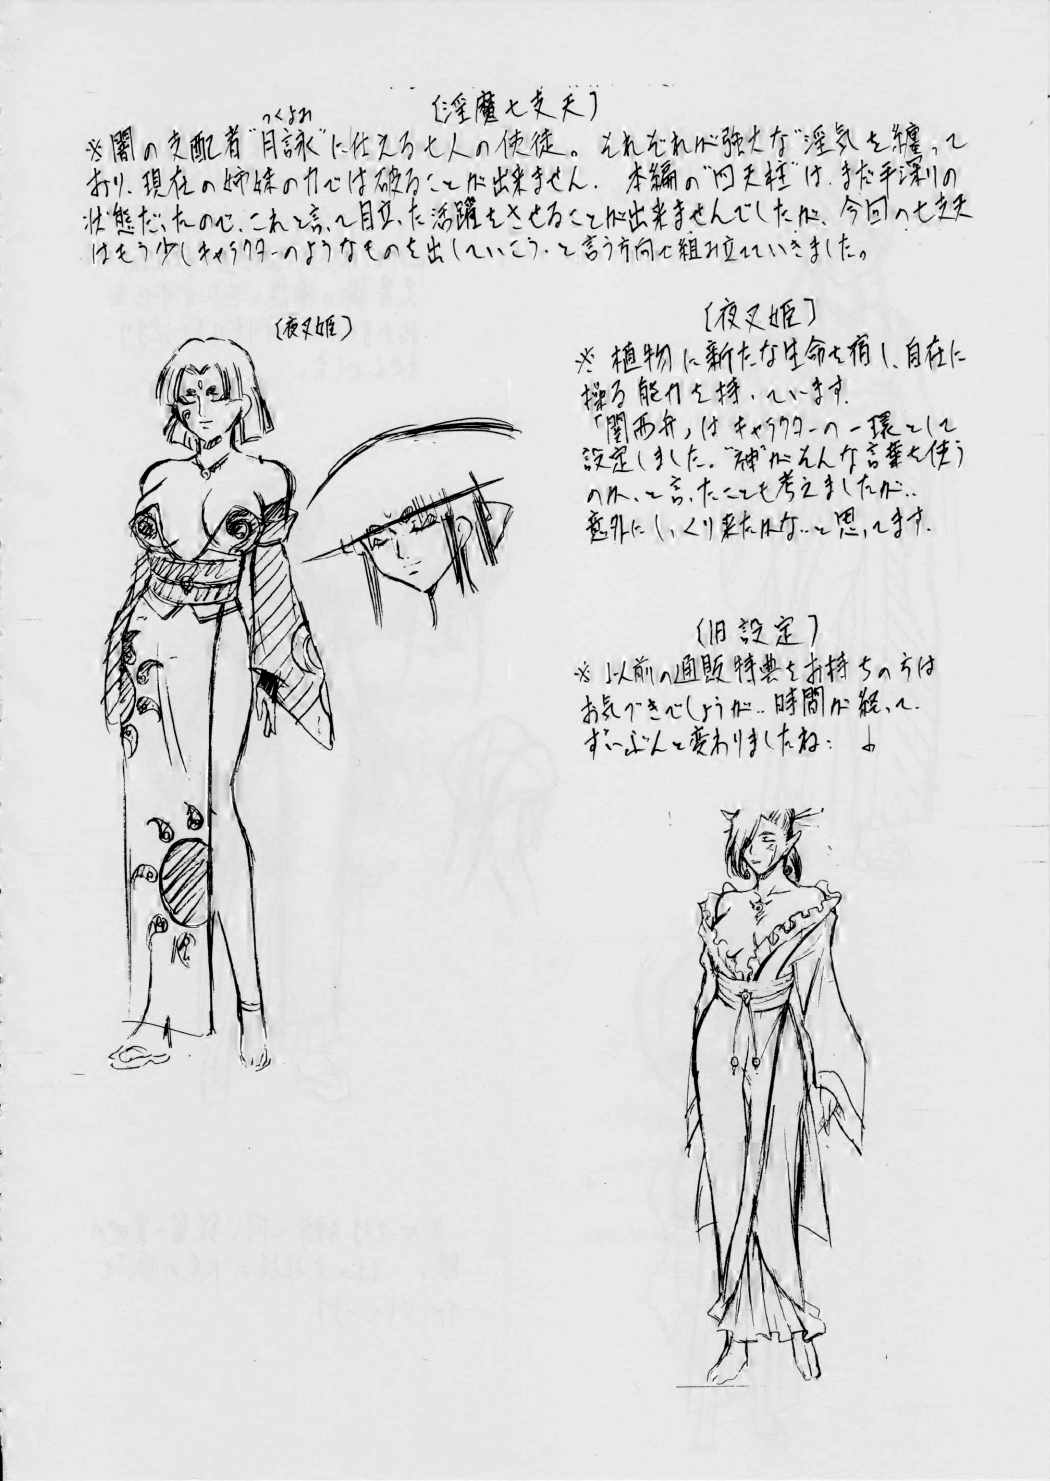 〔淫魔七支天〕
つくよみ
※闇の支配者"月詠"に仕える七人の使徒。それぞれが強大な"淫気"を纏って
おり、現在の姉妹の力では破ることが出来ません。本編の"四天柱"は、まだ手深りの
状態だったので、これと言って目立った活躍をさせることが出来ませんでしたが、今回の七支天
はもう少しキャラクターのようなものを出していこう、と言う方向で組み立てていきました。
〔夜叉姫〕
〔夜叉姫〕
※植物に新たな生命を宿し、自在に
操る能力を持っています。
「関西弁」はキャラクターの一環として
設定しました。"神"がそんな言葉を使う
のか、と言ったことも考えましたが‥
意外にしっくり来たかな‥と思ってます。
〔旧設定〕
※以前の通販特典をお持ちの方は
お気づきでしょうが‥時間が経って、
ずいぶんと変わりましたね：